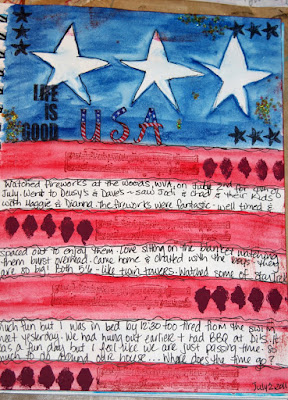 LIFE
IS
GOOD
USA
Watched fireworks at the woods, WVA, on July 2nd for 4th of
July. Went to Deusy's & Dave's - saw Jodi & Chad & their kids
with Maggie & Dianna. The fireworks were fantastic - well timed &
spaced out to enjoy them. Love sitting on the blanket watching
them burst overhead. Came home & chatted with the boys. They
are so big! Both 5'11 - like twin towers. Watched some of Star Trek
much fun but I was in bed by 12:30 too tired from the swim
meet yesterday. We had hung out earlier & had BBQ at Di's. It
was a fun day but I feel like we are just passing time - so
much to do around the house... Where does the time go?
July 2 2011